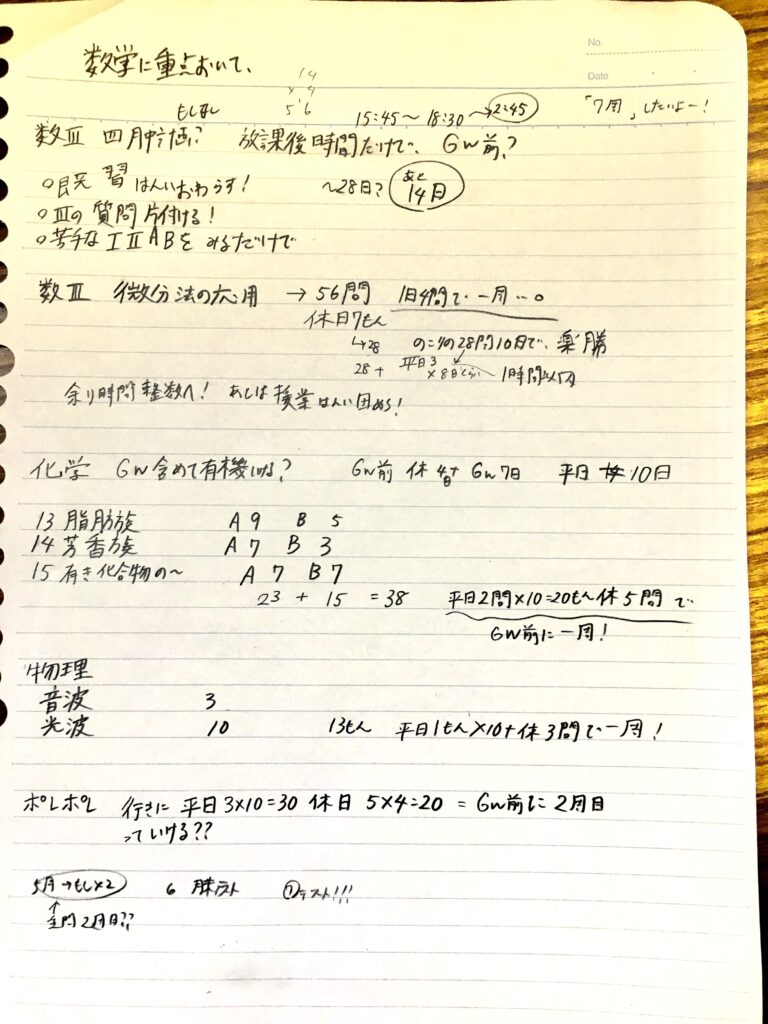 No.
Date
数学に重点おいて、
14
×4
56
もしなし
15:45〜18:30→2:45
「7周」したいよー!
数Ⅲ 四月計画? 放課後時間だけで、GW前?
習はんいおわらす! 〜28日? あと14日
○Ⅲの質問片付ける!
○苦手なⅠⅡABをみるだけで
数Ⅲ 微分法の応用 →56問 1日4問で一周…。
休日7もん
↳28 のこりの28問10日で、楽勝
28+ 平日3×8日くらい 1時間以内
余り時間整数へ! あしは授業はんい固めろ!
化学 GW含めて有機いける? GW前 休4日+GW7日 平日10日
13 脂肪族 A 9 B 5
14 芳香族 A 7 B 3
15 有き化合物の〜 A 7 B 7
23 + 15 = 38 平日2問×10=20もん〜休5問で
GW前に一周!
物理
音波 3
光波 10 13もん 平日1もん×10+休3問で一周!
ポレポレ 行きに 平日3×10=30 休日 5×4=20 = GW前に2周目
っていける??
5月→もし×2 6 テスト ①テスト!!!
↑
全問2周目??